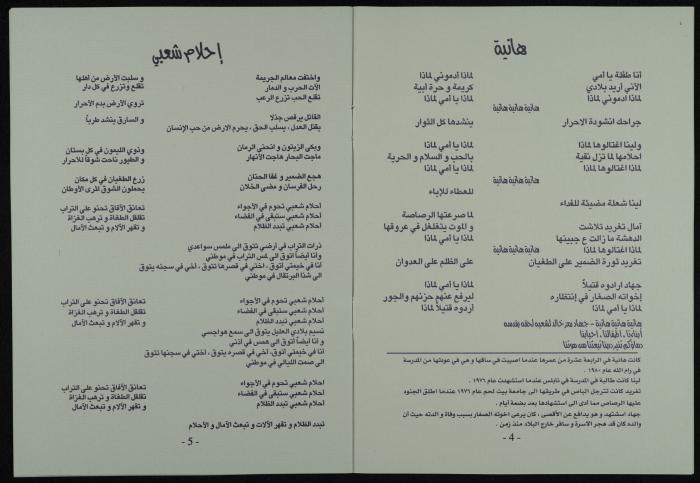 هانية
أنا طفلة يا أمي لماذا أدموني لماذا
الأني أريد بلادي كريمة و حرة أبية
لماذا أدموني لماذا لماذا يا أمي لماذا
هانية هانية هانية
جراحك انشودة الاحرار ينشدها كل الثوار
ولينا اغتالوها لماذا لماذا يا أمي لماذا
احلامها لما تزل نقية بالحب و السلام و الحرية
لماذا اغتالوها لماذا لماذا يا أمي لماذا
هانية هانية هانية
للعطاء للإباء
لينا شعلة مضيئة للفداء
لما صرعتها الرصاصة
آمال تغريد تلاشت و الموت يتغلغل في عروقها
الدهشة ما زالت ع جبينها لماذا يا أمي لماذا
لماذا اغتالوها لماذا هانية هانية هانية
تغريد ثورة الضمير على الطغيان على الظلم على العدوان
جهاد اردوه قتيلاً لماذا يا أمي لماذا
إخواته الصغار في إنتظاره ليرفع عنهم حزنهم والجور
لماذا يا أمي لماذا أردوه قتيلاً لماذا
هانية هانية هانية - جهاد
أبناؤنا ، اطفالنا ، احبابنا
كانت هانية في الرابعة عشرة من عمرها عندما اصيبت في ساقها و هي في عودتها من المدرسة
في رام الله عام ١٩٨٠ .
لينا كانت طالبة في المدرسة في نابلس عندما استشهدت عام ١٩٧٦ .
تغريد كانت تترجل الباص في طريقها الى جامعة بيت لحم عام ١٩٧٦ عندما اطلق الجنود
عليها الرصاص مما أدى الى استشهادها بعد بضعة أيام .
جهاد استشهد و هو يدافع عن الأقصى ، كان يرعى اخوته الصغار بسبب وفاة و الدته حيث أن
والده كان قد هجر الاسرة و سافر خارج البلاد منذ زمن .
- 4 -
إحلام شعبي
واختفت معالم الجريمة و سلبت الأرض من أهلها
الآت الحرب و الدمار تقلع وتزرع في كل دار
تقلع الحب تزرع الرعب تروي الأرض بدم الأحرار
القاتل يرقص جذلا و السارق ينشد طرباً
يقتل العدل ، يسلب الحق ، يحرم الارض من حب الإنسان
وبكى الزيتون و انحنى الرمان وذوي الليمون في كل بستان
ماجت البحار هاجت الأنهار و الطيور تاحت شوقاً للأحرار
هجع الضمير و غفا الحنان زرع الطغيان في كل مكان
رحل الفرسان و مضى الخلان يحملون الشوق لثرى الأوطان
أحلام شعبي تحوم في الأجواء تعانق الآفاق تحنو على التراب
أحلام شعبي ستبقى في الفضاء تقلقل الطغاة و ترهب الغزاة
أحلام شعبي تبدد الظلام و تقهر الآلام و تبعث الأمال
ذرات التراب في أرضي تتوق الى ملمس سواعدي
وأنا ايضاً أتوق الى لمس التراب في موطني
أنا في خيمتي أتوق ، اختي في قصرها تتوق ، أخي في سجنه يتوق
الى شذا البرتقال في موطني
أحلام شعبي تحوم في الأجواء تعانق الآفاق تحنو على التراب
أحلام شعبي ستبقى في الفضاء تقلقل الطغاة و ترهب الغزاة
أحلام شعبي تبدد الظلام و تقهر الآلام و تبعث الأمال
نسيم بلادي العليل يتوق الى سمع هواجسي
و أنا ايضاً أتوق الى همس في أذني
أنا في خيمتي أتوق، أخي في قصره يتوق ، أختي في سجنها تتوق
الى صمت الليالي في موطني
أحلام شعبي تحوم في الأجواء تعانق الآفاق تحنو على التراب
أحلام شعبي ستبقى في الفضاء تقلقل الطغاة و ترهب الغزاة
أحلام شعبي تبدد الظلام و تقهر الآلام و تبعث الأمال
تبدد الظلام و تقهر الآلات و تبعث الأمال و الأحلام
- 5 -